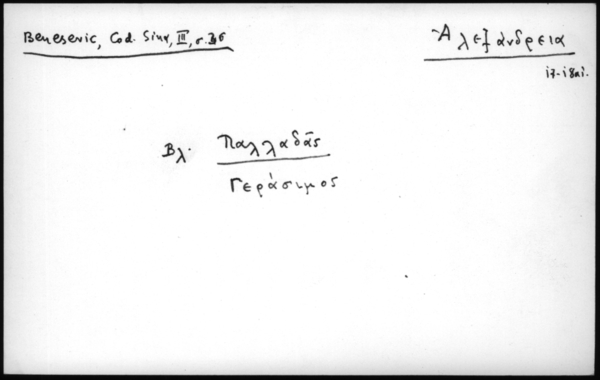 Benesevic, Cod. Sin., III, σ.
Ἀλεξάνδρεια
17-18 αἰ.
Βλ. Παλλαδᾶς
Γεράσιμος